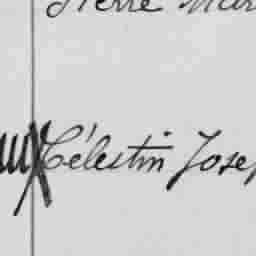 Pierre Mar
ux Célestin Josep